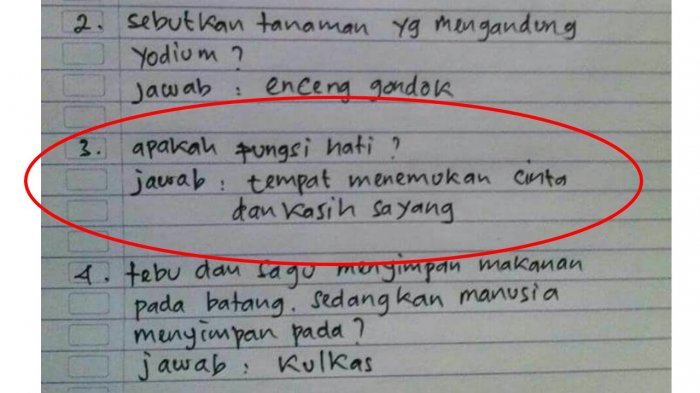 2. sebutkan tanaman yg mengandung
yodium?
jawab : enceng gondok
3. apakah fungsi hati?
jawab : tempat menemukan cinta
dan kasih sayang
4. tebu dan sagu menyimpan makanan
pada batang. sedangkan manusia
menyimpan pada?
jawab : kulkas